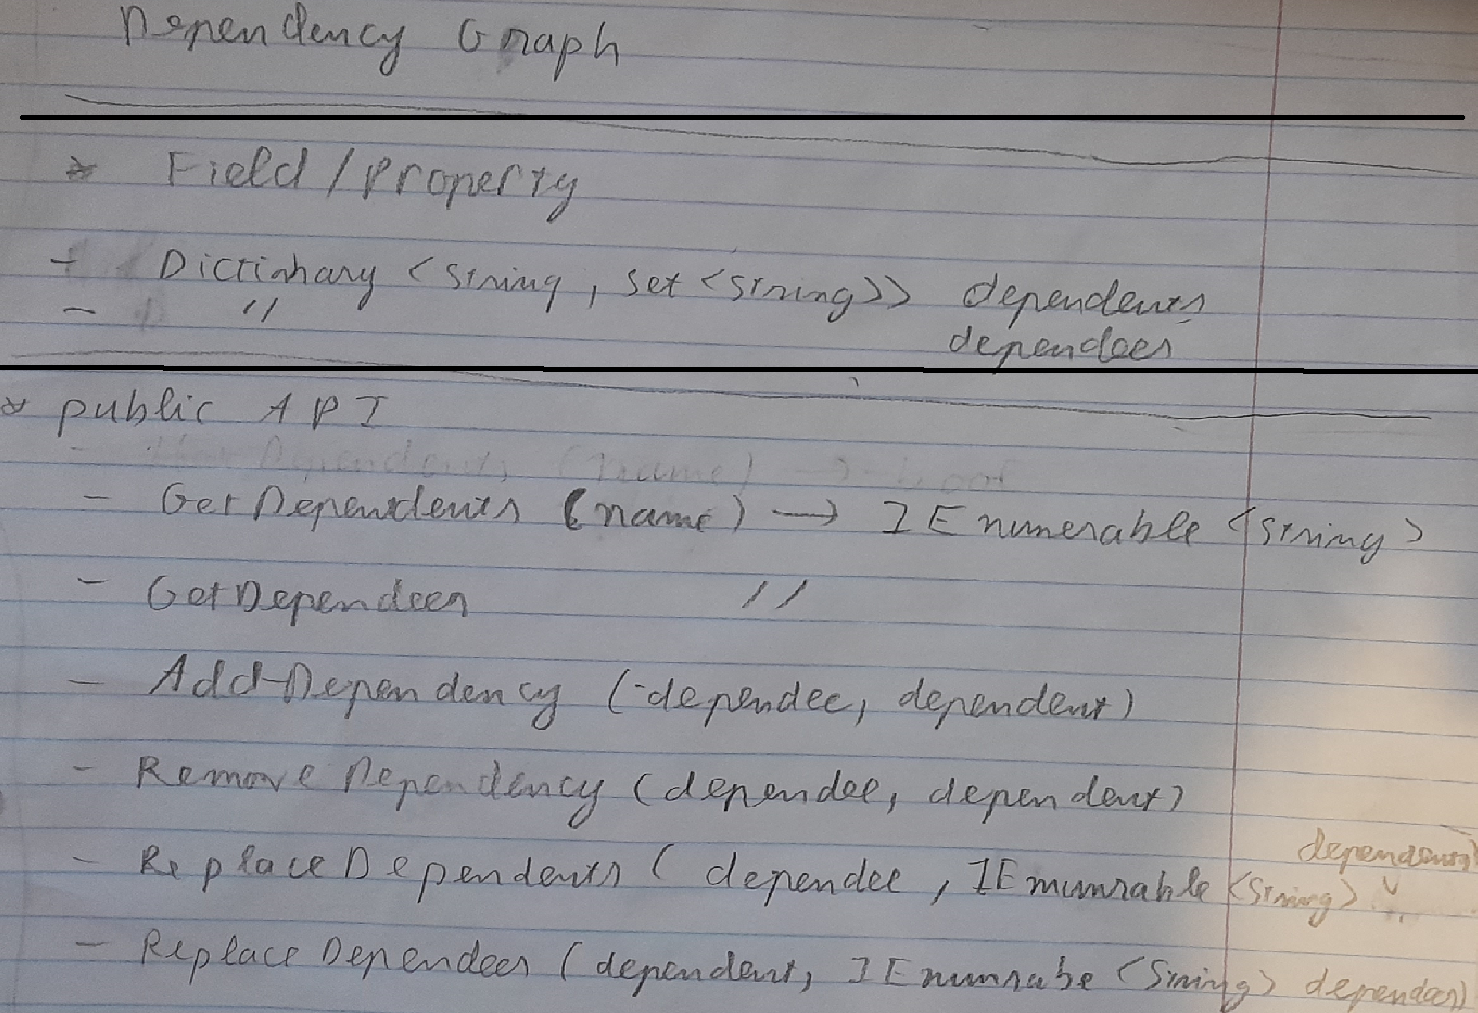 Dependency Graph
* Field / Property
- Dictinary <string, set<string>> dependents
- " dependees
* public API
- GetDependents (name) → IEnumerable <string>
- GetDependees "
- AddDependency (dependee, dependent)
- Remove Dependency (dependee, dependent)
dependents)
- ReplaceDependents (dependee, IEnumrable <string>
- ReplaceDependees (dependent, IEnumrabe <String> dependees)